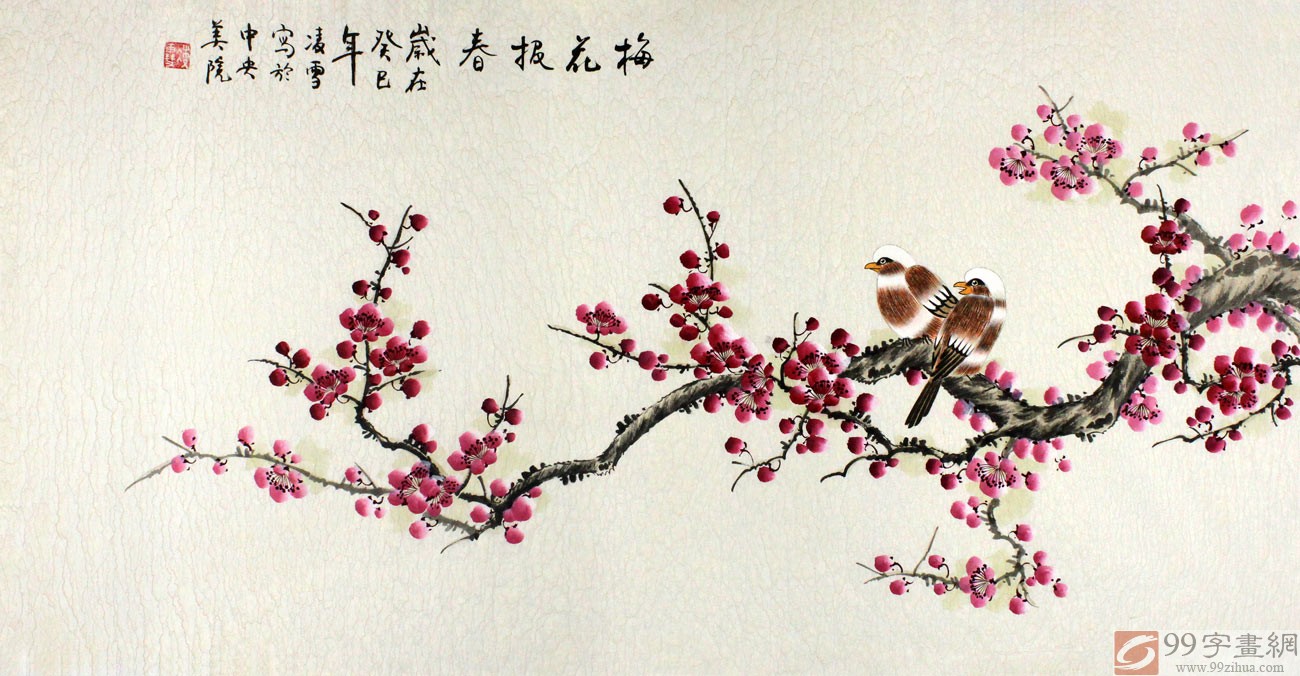 梅花报春
歲在
癸巳
年
凌雪
寫於
中央
美院
99字畫網
www.99zihua.com